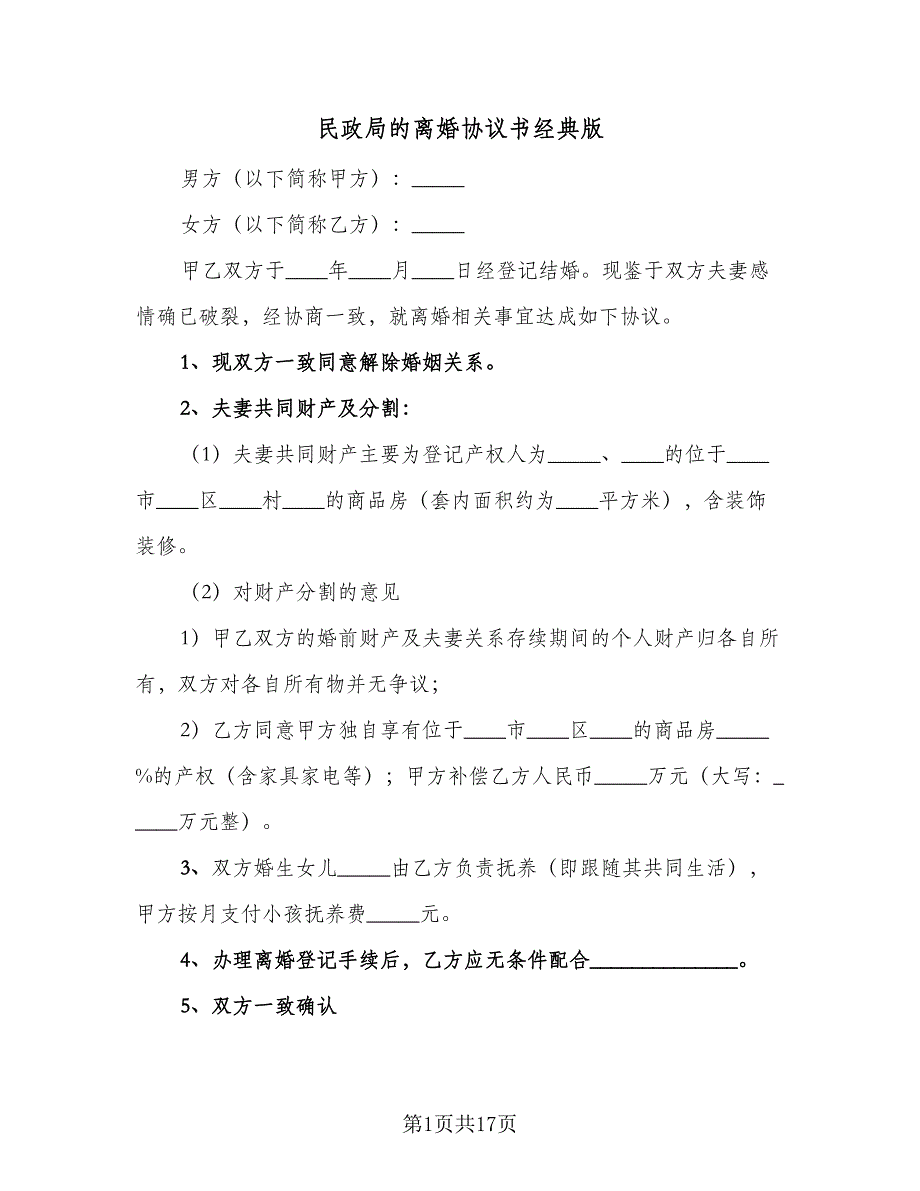 民政局的离婚协议书经典版
男方（以下简称甲方）：_____
女方（以下简称乙方）：_____
甲乙双方于____年____月____日经登记结婚。现鉴于双方夫妻感
情确已破裂，经协商一致，就离婚相关事宜达成如下协议。
1、现双方一致同意解除婚姻关系。
2、夫妻共同财产及分割：
（1）夫妻共同财产主要为登记产权人为_____、____的位于____
市____区____村____的商品房（套内面积约为____平方米），含装饰
装修。
（2）对财产分割的意见
1）甲乙双方的婚前财产及夫妻关系存续期间的个人财产归各自所
有，双方对各自所有物并无争议；
2）乙方同意甲方独自享有位于____市____区____的商品房_____
%的产权（含家具家电等）；甲方补偿乙方人民币_____万元（大写：_
____万元整）。
3、双方婚生女儿_____由乙方负责抚养（即跟随其共同生活），
甲方按月支付小孩抚养费_____元。
4、办理离婚登记手续后，乙方应无条件配合______________。
5、双方一致确认
第1页共17页